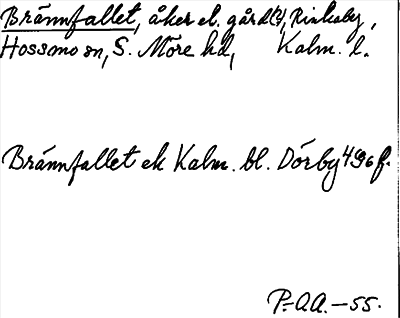 Brännfallet, åker el. gård(?), Rinkaby,
Hossmo sn, S. Möre hd, Kalm. l.
Brännfallet ek Kalm. bl. Dörby 4 9b f.
P.-O.A. - 55.